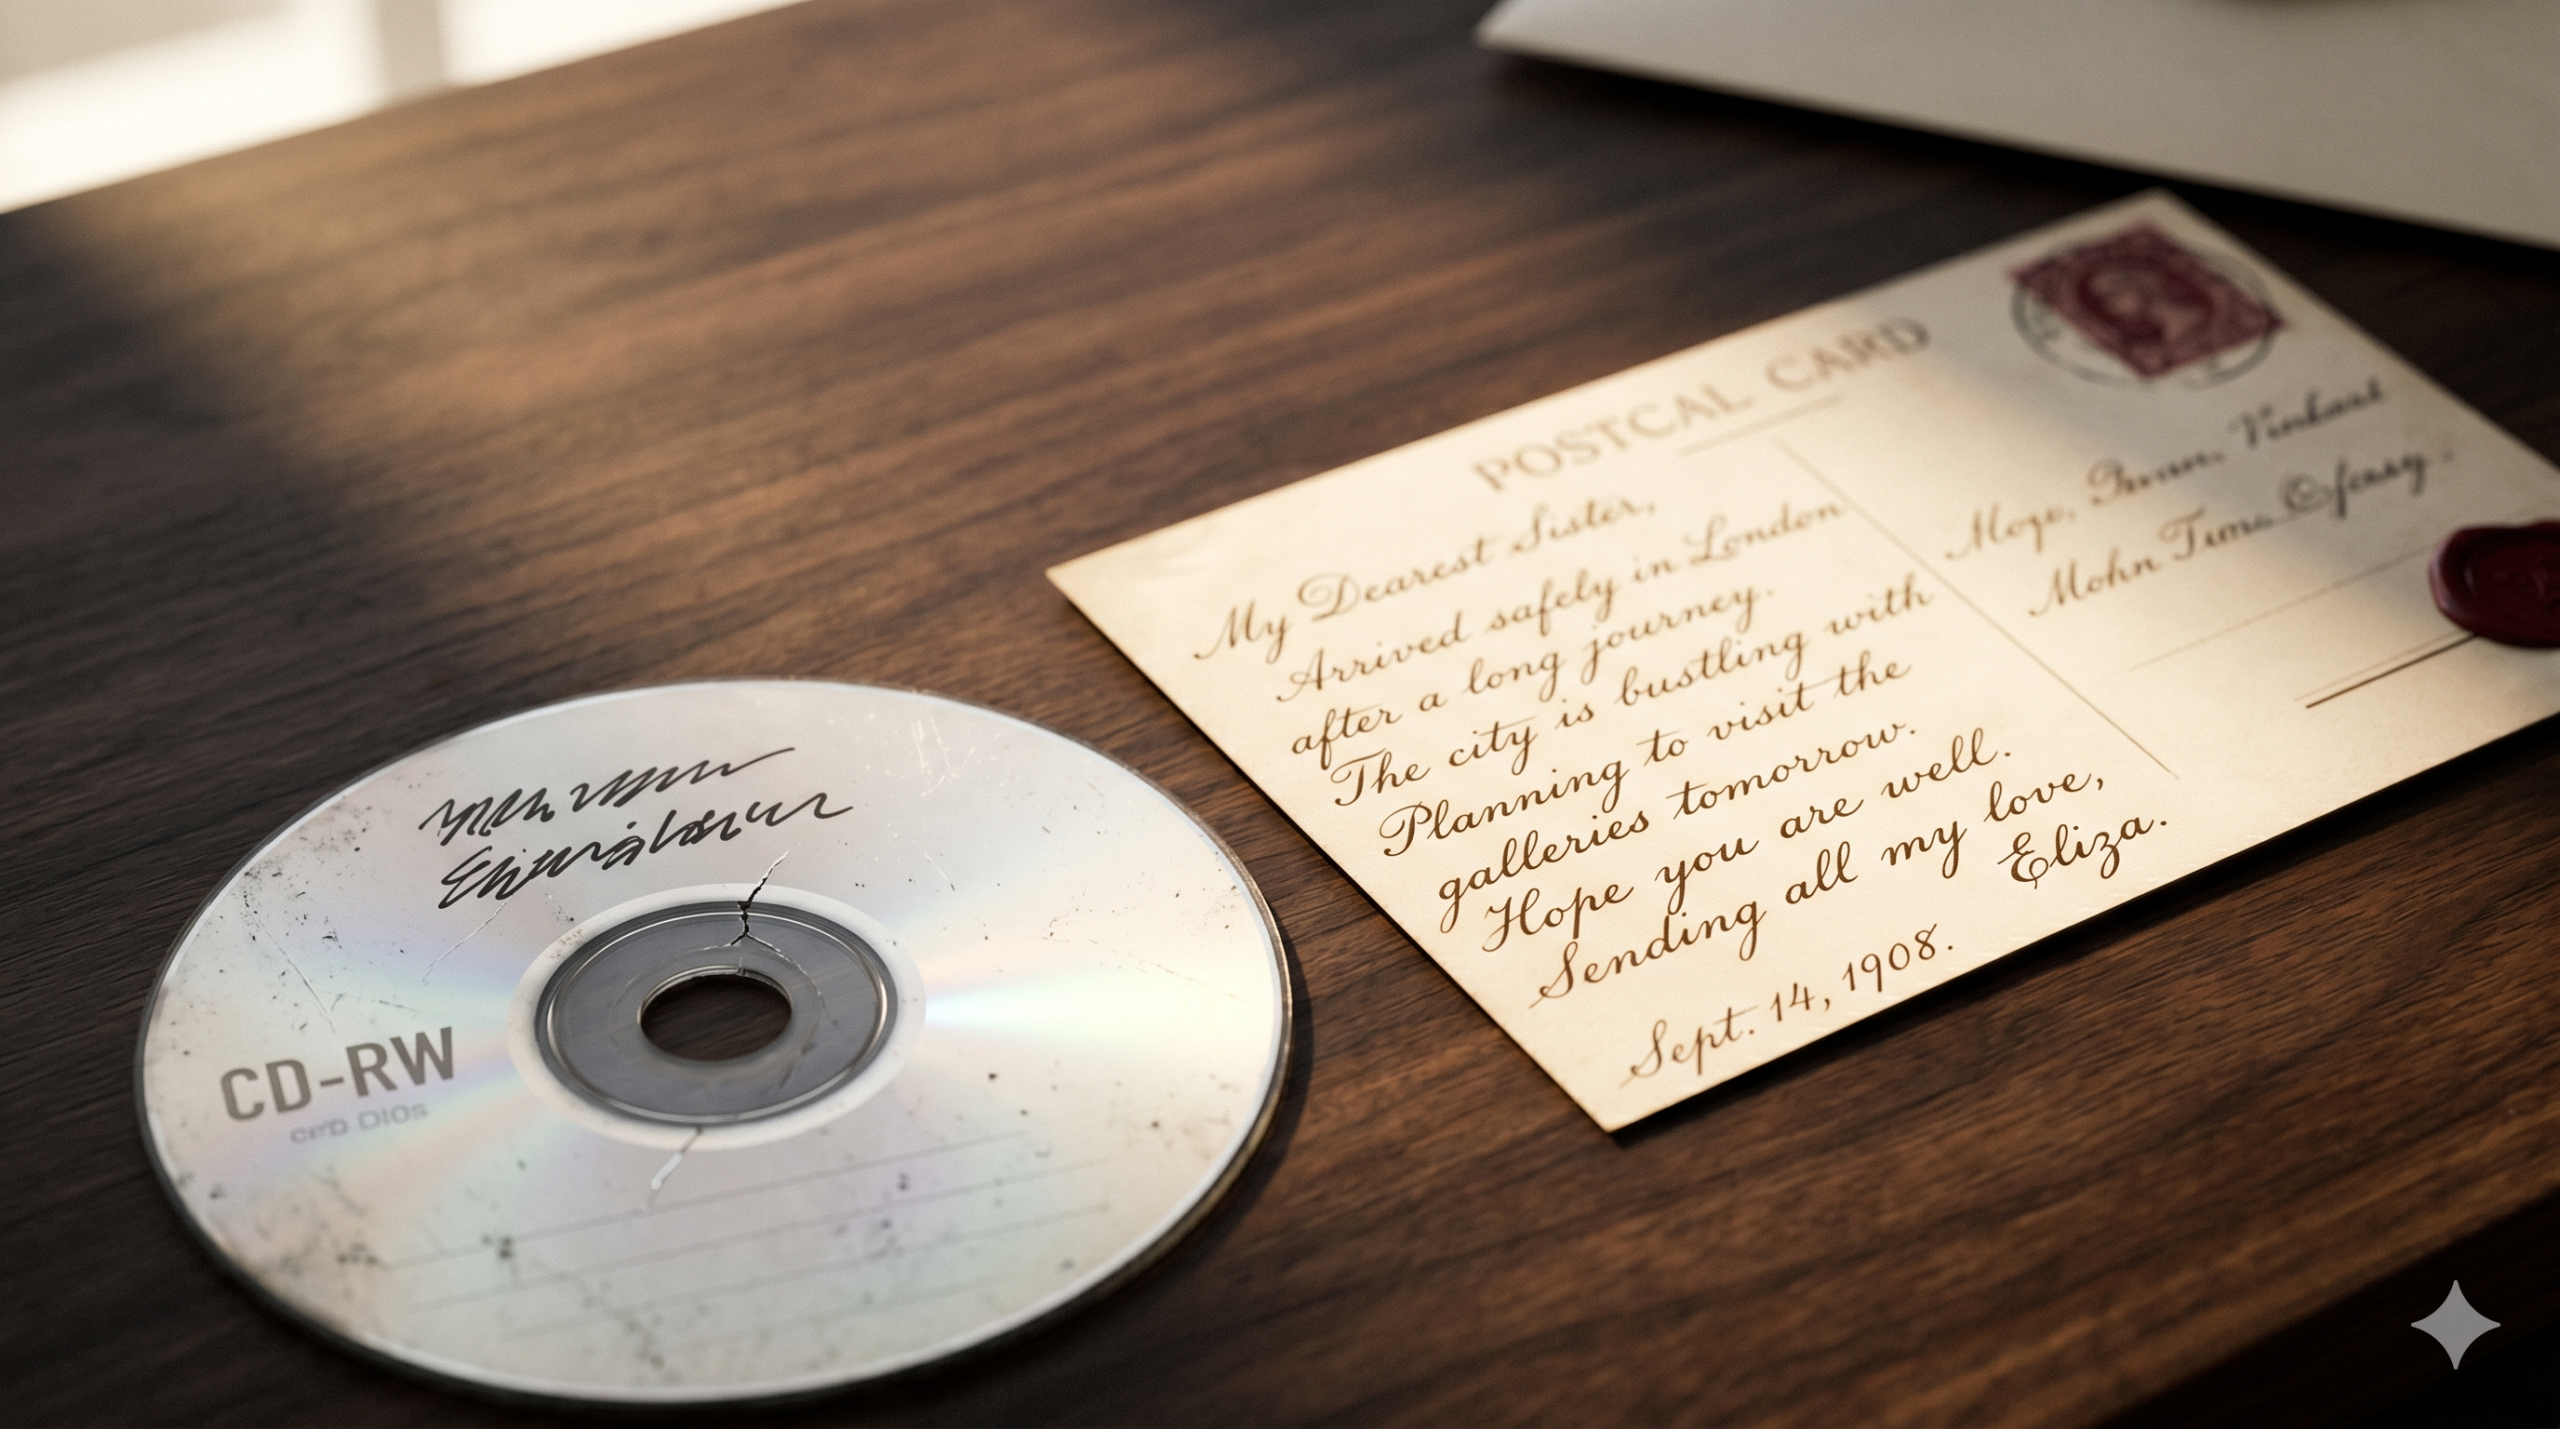 CD-RW
POSTCAL CARD
My Dearest Sister,
Arrived safely in London
after a long journey.
The city is bustling with
Planning to visit the
galleries tomorrow.
Hope you are well.
Sending all my love,
Eliza.
Sept. 14, 1908.